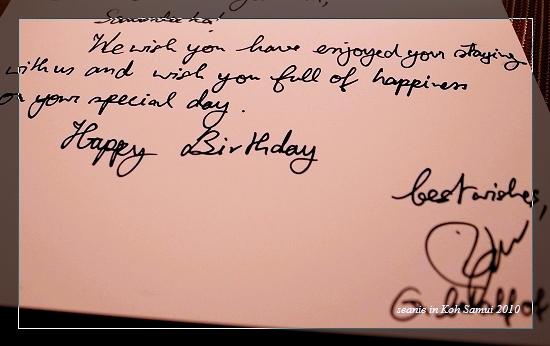 Sawasdee ka!
We wish you have enjoyed your staying
with us and wish you full of happiness
on your special day.
Happy Birthday
best wishes,
seanie in Koh Samui 2010